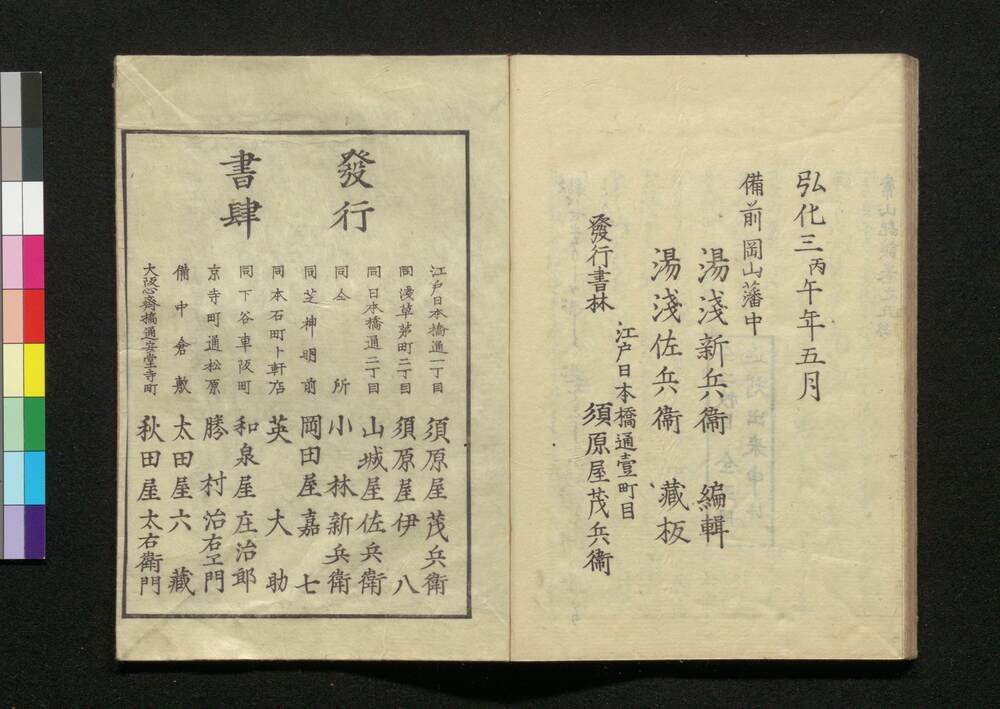 弘化三丙午年五月
備前岡山藩中
湯淺新兵衞 編輯
湯淺佐兵衞 藏板
江戸日本橋通壹町目
發行書林 須原屋茂兵衞
發行
書肆
江戸日本橋通一丁目 須原屋茂兵衞
同淺草茅町二丁目 須原屋伊八
同日本橋通二丁目 山城屋佐兵衞
同仝所 小林新兵衞
同芝神明前 岡田屋嘉七
同本石町十軒店 英大助
同下谷車阪町 和泉屋庄治郎
京寺町通松原 勝村治右ヱ門
備中倉敷 太田屋六藏
大阪心齋橋通安堂寺町 秋田屋太右衞門